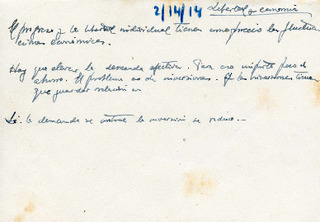 2/14/14 Libertad y economía
El progreso y la libertad individual tienen como precio las fluctua
ciones económicas.
Hay que elevar la demanda efectiva. Para eso impuesto para el
ahorro. El problema es de inversiones. Las inversiones tienen
que guardar relación
Si la demanda se contrae la inversión se reduce..-